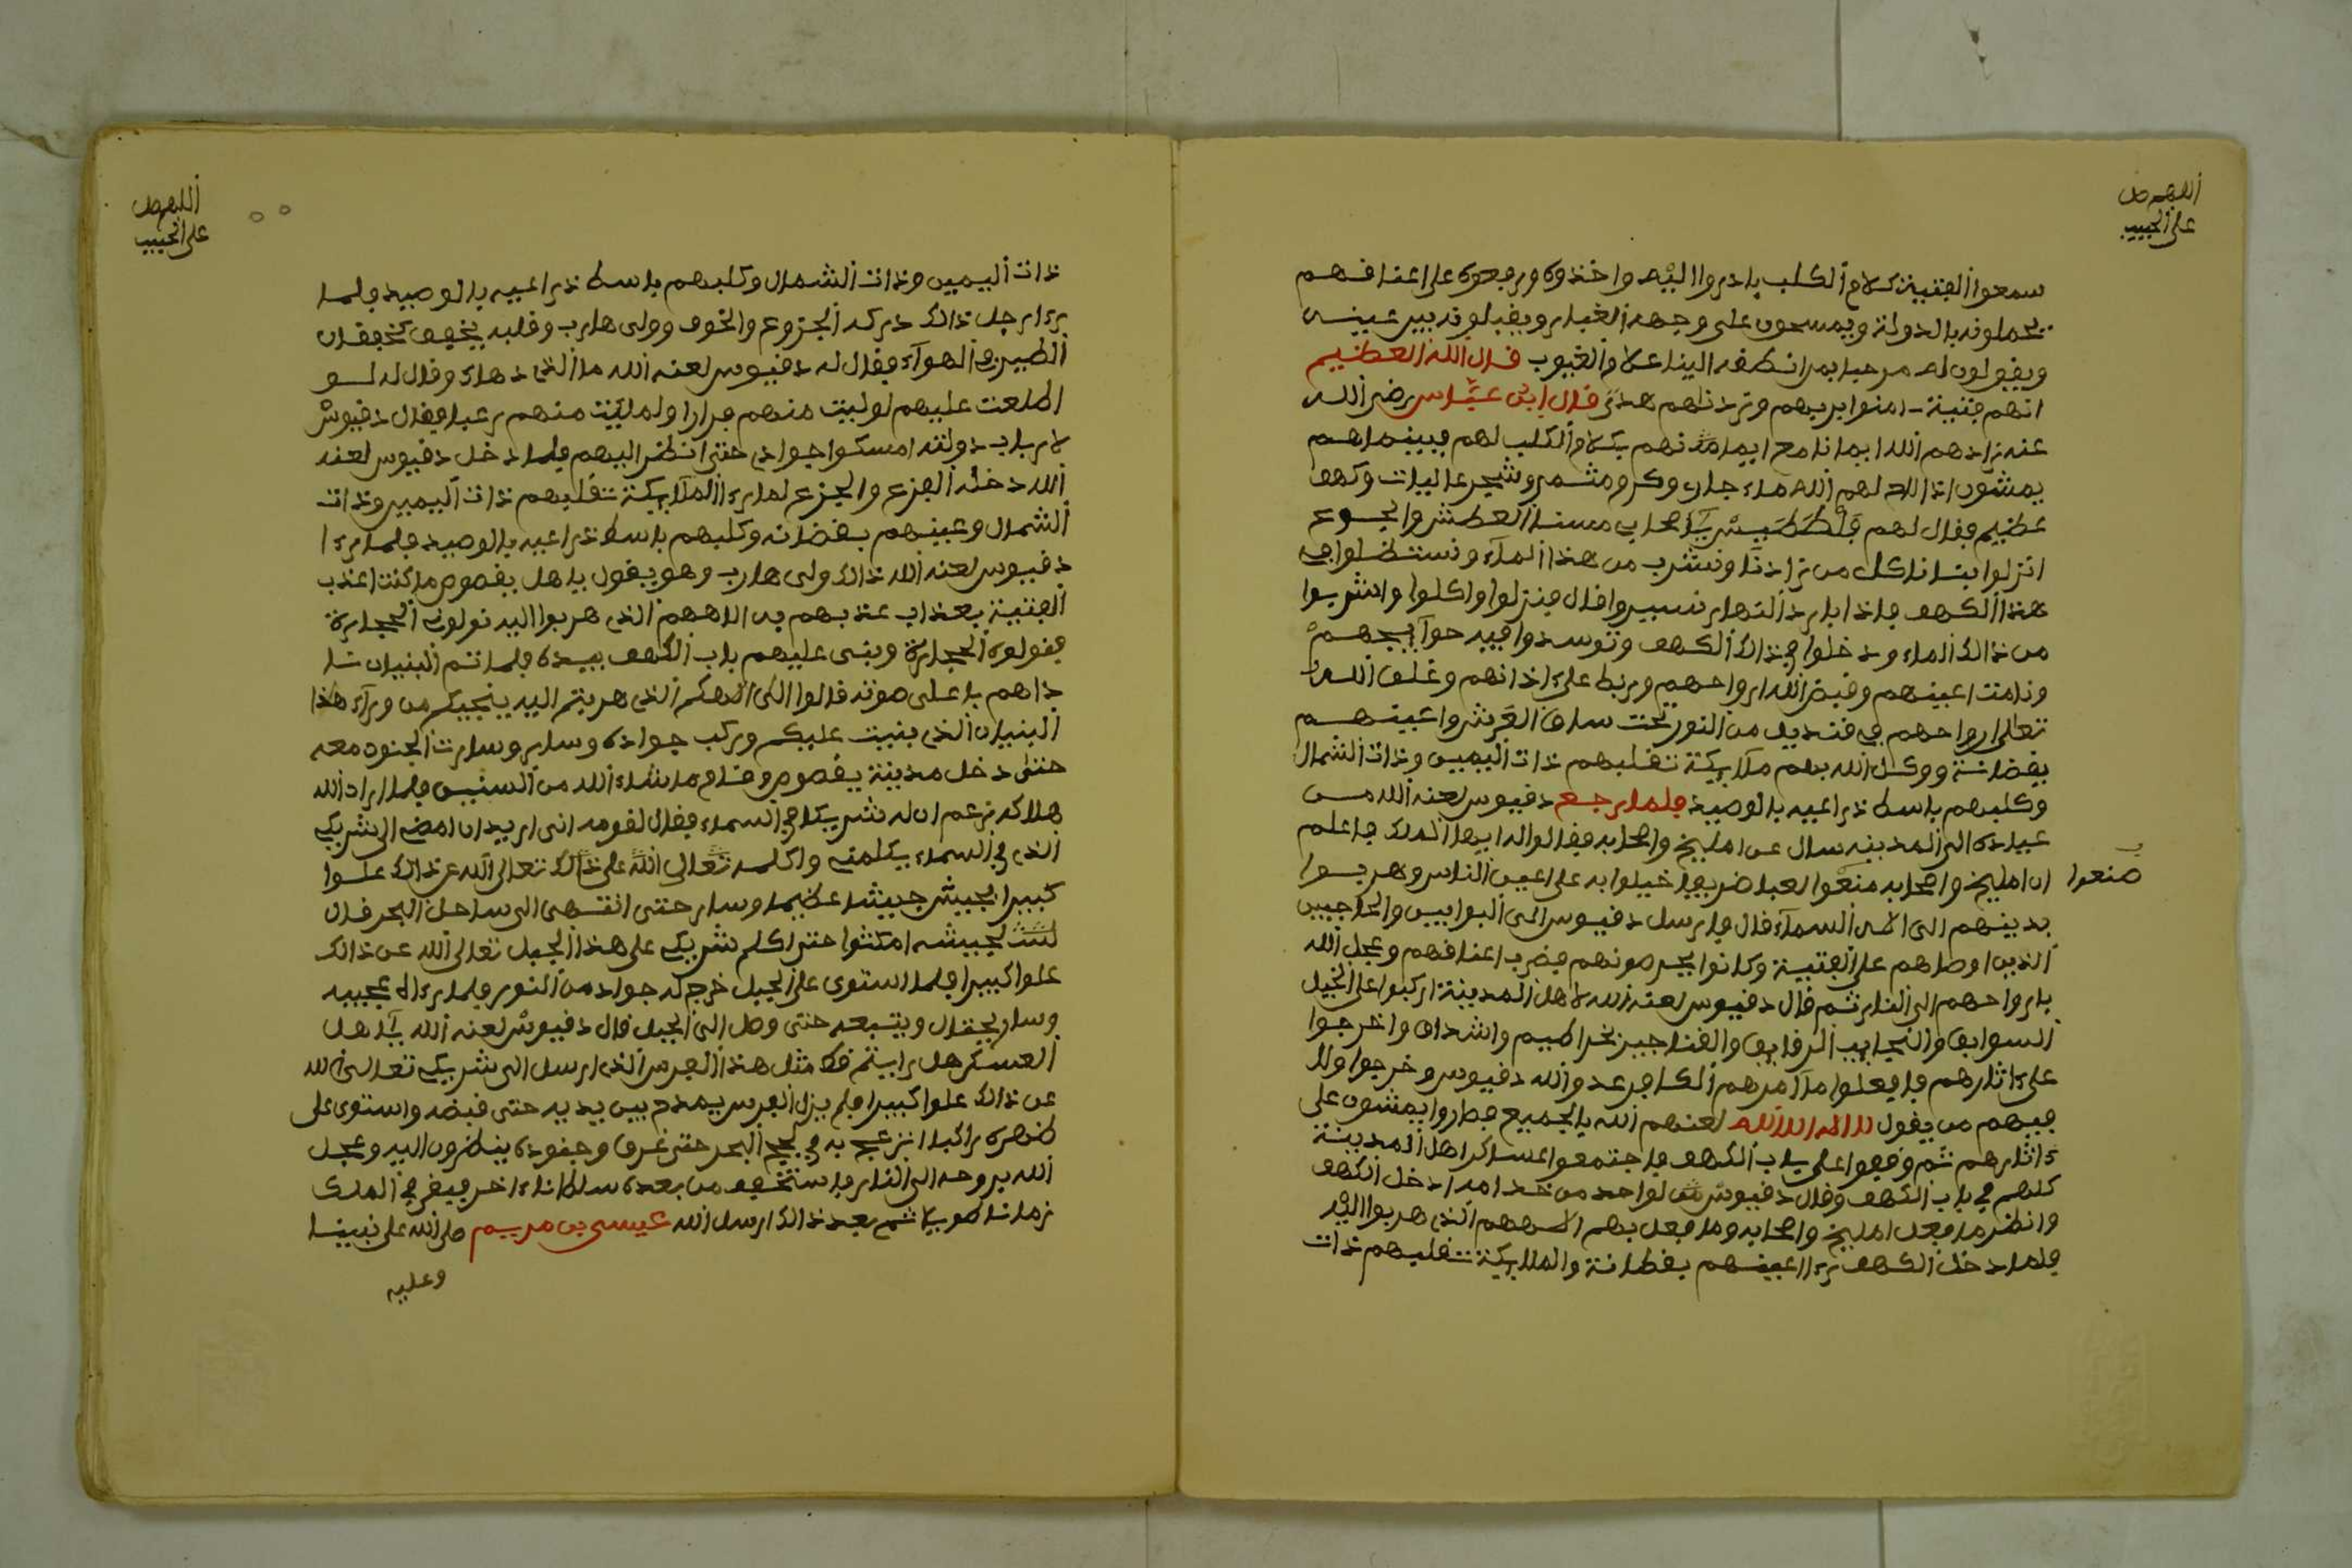 اللهم صل
على الحبيب
سمعوا الفتية كلام الكلب بادروا اليه واخذوه ورفعوه على اعناقهم
يحملونه بالدولة ويمسحون على وجهه الغبار ويقبلونه بين عينيه
ويقولون له مرحبا بمن انطقه الينا علام الغيوب قال الله العظيم
انهم فتية امنوا بربهم وزدناهم هدى قال ابن عباس رضي الله
عنه زادهم الله ايمانا مع ايمانهم بكلام الكلب لهم فبينما هم
يمشون اذا لاح لهم الله ماء جار وكرم مثمر وشجر عاليات وكهف
عظيم فقال لهم يا اصحابي مسنا العطش والجوع
انزلوا بنا ناكل من زادنا ونشرب من هذا الماء ونستظلوا في
هذا الكهف فاذا برد النهار نسيروا قال فنزلوا واكلوا واشربوا
من ذالك الماء ودخلوا في ذالك الكهف وتوسدوا فيه حوايجهم
ونامت اعينهم وقبض الله ارواحهم وربط على اذانهم وعلق الله
تعالى ارواحهم في قنديل من النور تحت ساق العرش واعينهم
يقضانة ووكل الله بهم ملايكة تقلبهم ذات اليمين وذات الشمال
وكلبهم باسط ذراعيه بالوصيد فلما رجع دقيوس لعنه الله من
عيادة الى المدينة سال عن امليخ واصحابه فقالوا له ايها الملك فاعلم
ان امليخ واصحابه منعوا لعبا ضريفا خيلوا به على اعين الناس وهربوا
صنعوا
بدينهم الى اله السماء قال فارسل دقيوس الى البوابين والحاجبين
الذين اوصاهم على الفتية وكانوا يحرصونهم فضرب اعناقهم وعجل الله
بارواحهم الى النار ثم قال دقيوس لعنه الله لاهل المدينة اركبوا على الخيل
السوابق والنجايب الرفايق واخرجوا
على اثارهم فافعلوا ما امرهم الكافر عدو الله دقيوس وخرجوا ولا
فيهم من يقول لا اله الا الله لعنهم الله بالجميع فصاروا يمشون على
ءاثارهم ثم وقفوا على باب الكهف فاجتمعوا عساكر اهل المدينة
كلهم في باب الكهف وقال دقيوس لواحد من خدامه ادخل الكهف
وانظر ما فعل امليخ واصحابه وما فعل بهم الاههم الذي هربوا اليه
فلما دخل الكهف رءا اعينهم يقظانة والملايكة تقلبهم ذات
اللهم صل
على الحبيب
ذات اليمين وذات الشمال وكلبهم باسط ذراعيه بالوصيد فلما
رءا رجل ذالك دركه الجزوع والخوف وولى هارب وقلبه يخفق كخفقان
الطير في الهواء فقال له دقيوس لعنه الله ما الذي دهاك وقال له لو
اطلعت عليهم لوليت منهم فرارا ولملئت منهم رعبا فقال دقيوس
لارباب دولته امسكوا جوادي حتى انظر اليهم فلما دخل دقيوس لعنه
الله دخله الفزع والجزع لما رءا الملايكة تقلبهم ذات اليمين وذات
الشمال وعينهم يقضانه وكلبهم باسط ذراعيه بالوصيد فلما رءا
دقيوس لعنه الله ذالك ولى هارب وهو يقول ياهل يفصوص ما كنت اعذب
الفتية بعذاب عذبهم به الاههم الذي هربوا اليه نولوني الحجارة
فنولوه الحجارة وبنى عليهم باب الكهف بيده فلما تم البنيان نا
داهم باعلى صوته قالوا الى الاهكم الذي هربتم اليه ينجيكم من وراء هذا
البنيان الذي بنيت عليكم وركب جواده وسار وسارت الجنود معه
حتى دخل مدينة يفصوص وقام ما شاء الله من السنين فلما اراد الله
هلاكه زعم ان له شريكا في السماء فقال لقومه اني اريد ان امضي الى شريكي
الذي في السماء يكلمني واكلمه تعالى الله على ذالك تعالى الله عن ذالك علوا
كبيرا فجيش جيشا عظيما وسار حتى انتهى الى ساحل البحر قال
لجيشه امكثوا حتى اكلم شريكي على هذا الجبل تعالى الله عن ذالك
علوا كبيرا فلما استوى على الجبل خرج له جواد من النور فلما رءاه عجبه
وسار يحتال ويتبعه حتى وصل الى الجبل قال دقيوس لعنه الله يا اهل
العسكر هل رايتم قط مثل هذا الفرس الذي ارسل الي شريكي تعالى الله
عن ذالك علوا كبيرا فلم يزل الفرس يمدح بين يديه حتى قبضه واستوى على
ظهره راكبا انزعج به في لجج البحر حتى غرق وجنوده ينظرون اليه وعجل
الله بروحه الى النار فاستخلف من بعده سلطانا ءاخر فبقى في الملك
زمانا طويلا ثم بعد ذالك ارسل الله عيسى بن مريم صلى الله على نبينا
وعليه